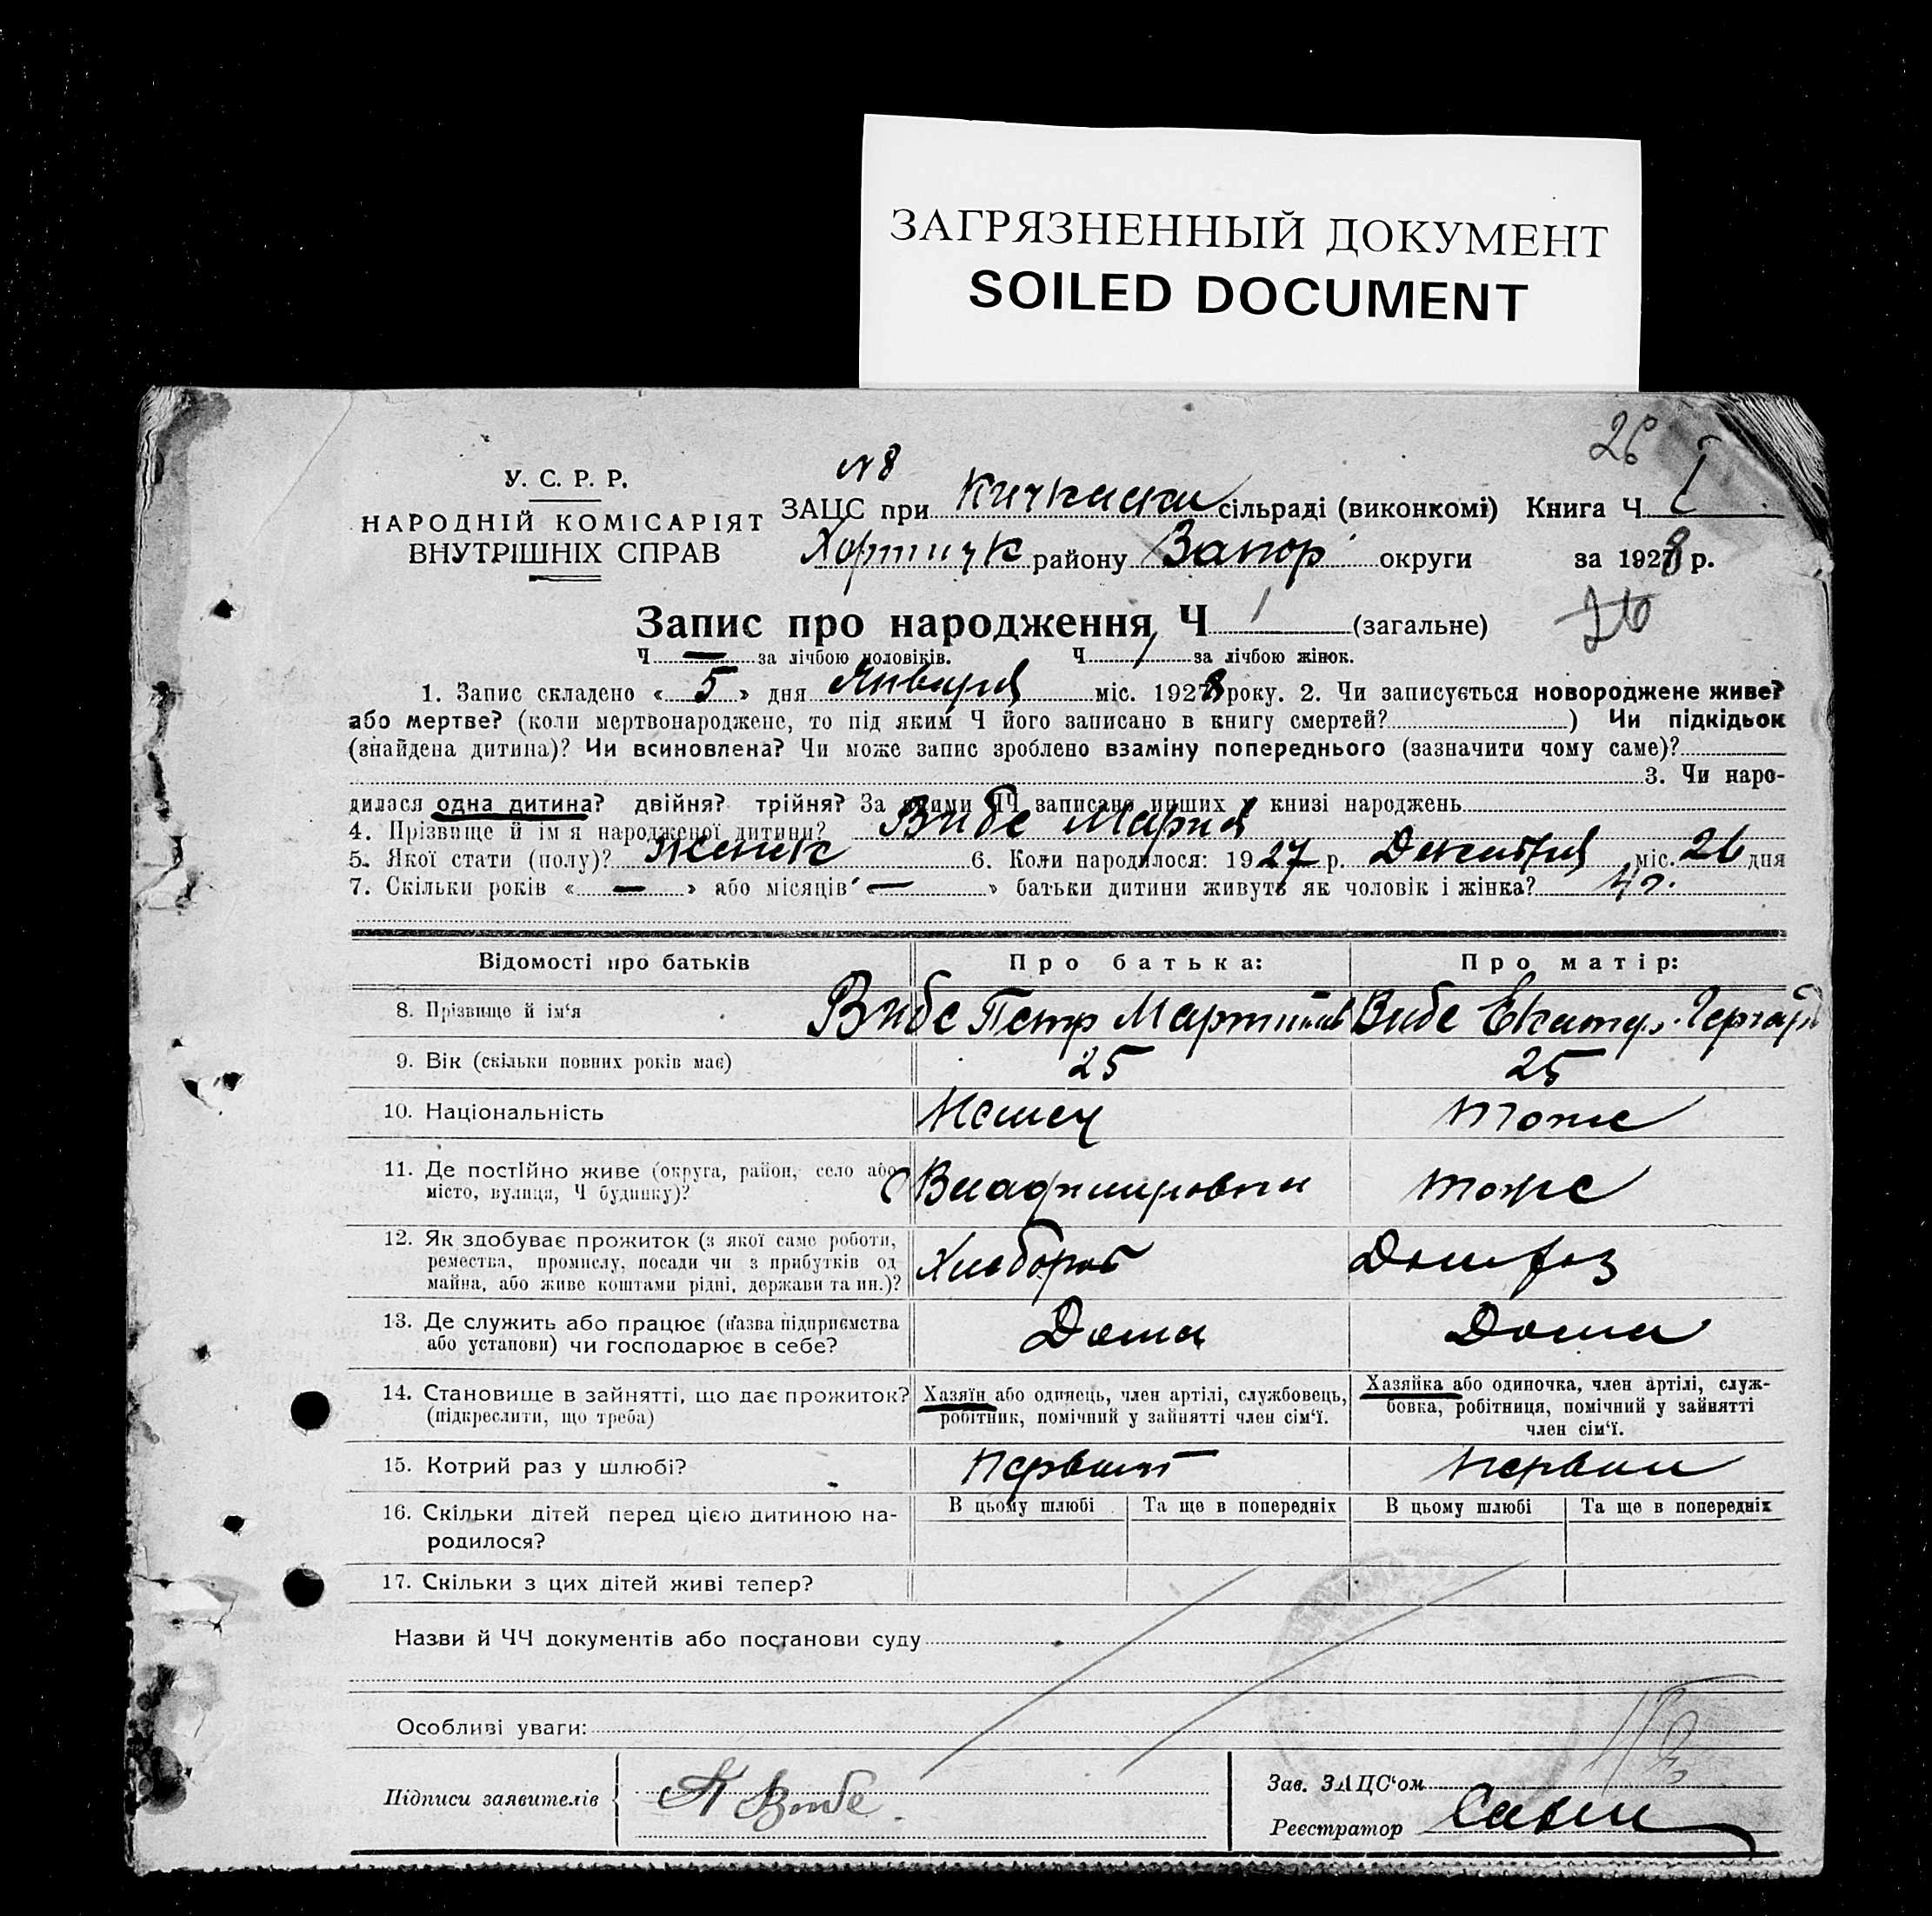 ЗАГРЯЗНЕННЫЙ ДОКУМЕНТ
SOILED DOCUMENT
26
У. С. Р. Р.
НАРОДНІЙ КОМІСАРІЯТ
ВНУТРІШНІХ СПРАВ
N 8
ЗАЦС при Кичкаски сільраді (виконкомі) Книга Ч I
Хортицк району Запор округи за 1928 р.
Запис про народження Ч 1 (загальне)
26
Ч — за лічбою чоловіків. Ч 1 за лічбою жінок.
1. Запис складено « 5 » дня Января міс. 1928 року. 2. Чи записується новороджене живе?
або мертве? (коли мертвонароджене, то під яким Ч його записано в книгу смертей? ) Чи підкідьок
(знайдена дитина)? Чи всиновлена? Чи може запис зроблено взаміну попереднього (зазначити чому саме)?
3. Чи наро-
дилася одна дитина? двійня? трійня? За якими ЧЧ записано инших у книзі народжень
4. Прізвище й ім'я народженої дитини? Вибе Мария
5. Якої стати (полу)? женск 6. Коли народилося: 1927 р. Декабря міс. 26 дня
7. Скільки років « — » або місяців « — » батьки дитини живуть як чоловік і жінка? 4 г.
Відомості про батьків Про батька: Про матір:
8. Прізвище й ім'я Вибе Петр Мартинов Вибе Екатер. Гергард
9. Вік (скільки повних років має) 25 25
10. Національність Немец тоже
11. Де постійно живе (округа, район, село або
місто, вулиця, Ч будинку)? с Владимировки тоже
12. Як здобуває прожиток (з якої саме роботи,
ремества, промислу, посади чи з прибутків од
майна, або живе коштами рідні, держави та ин.)? Хлебороб Домхоз
13. Де служить або працює (назва підприємства
або установи) чи господарює в себе? Дома Дома
14. Становище в зайнятті, що дає прожиток?
(підкреслити, що треба)
Хазяїн або одинець, член артілі, службовець,
робітник, помічний у зайнятті член сім'ї.
Хазяйка або одиночка, член артілі, служ-
бовка, робітниця, помічний у зайнятті
член сім'ї.
15. Котрий раз у шлюбі? Первый Первый
16. Скільки дітей перед цією дитиною на-
родилося?
В цьому шлюбі Та ще в попередніх В цьому шлюбі Та ще в попередніх
17. Скільки з цих дітей живі тепер?
Назви й ЧЧ документів або постанови суду
Особливі уваги:
Підписи заявителів П Вибе.
Зав. ЗАЦС'ом
Реєстратор